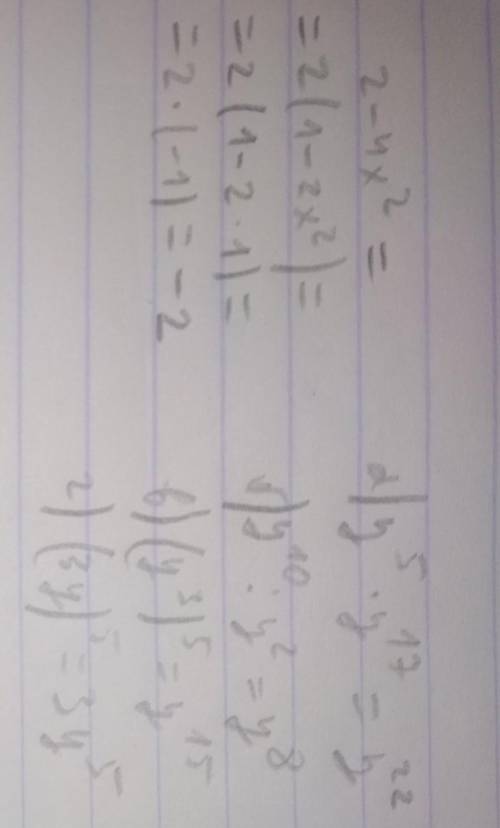 2-4x² =
=2(1-2x²)=
=2(1-2·1)=
=2·(-1)=-2
а) y⁵ · y¹⁷ = y²²
б) y¹⁰ : y² = y⁸
в) (y³)⁵ = y¹⁵
г) (3y)⁵ = 3y⁵